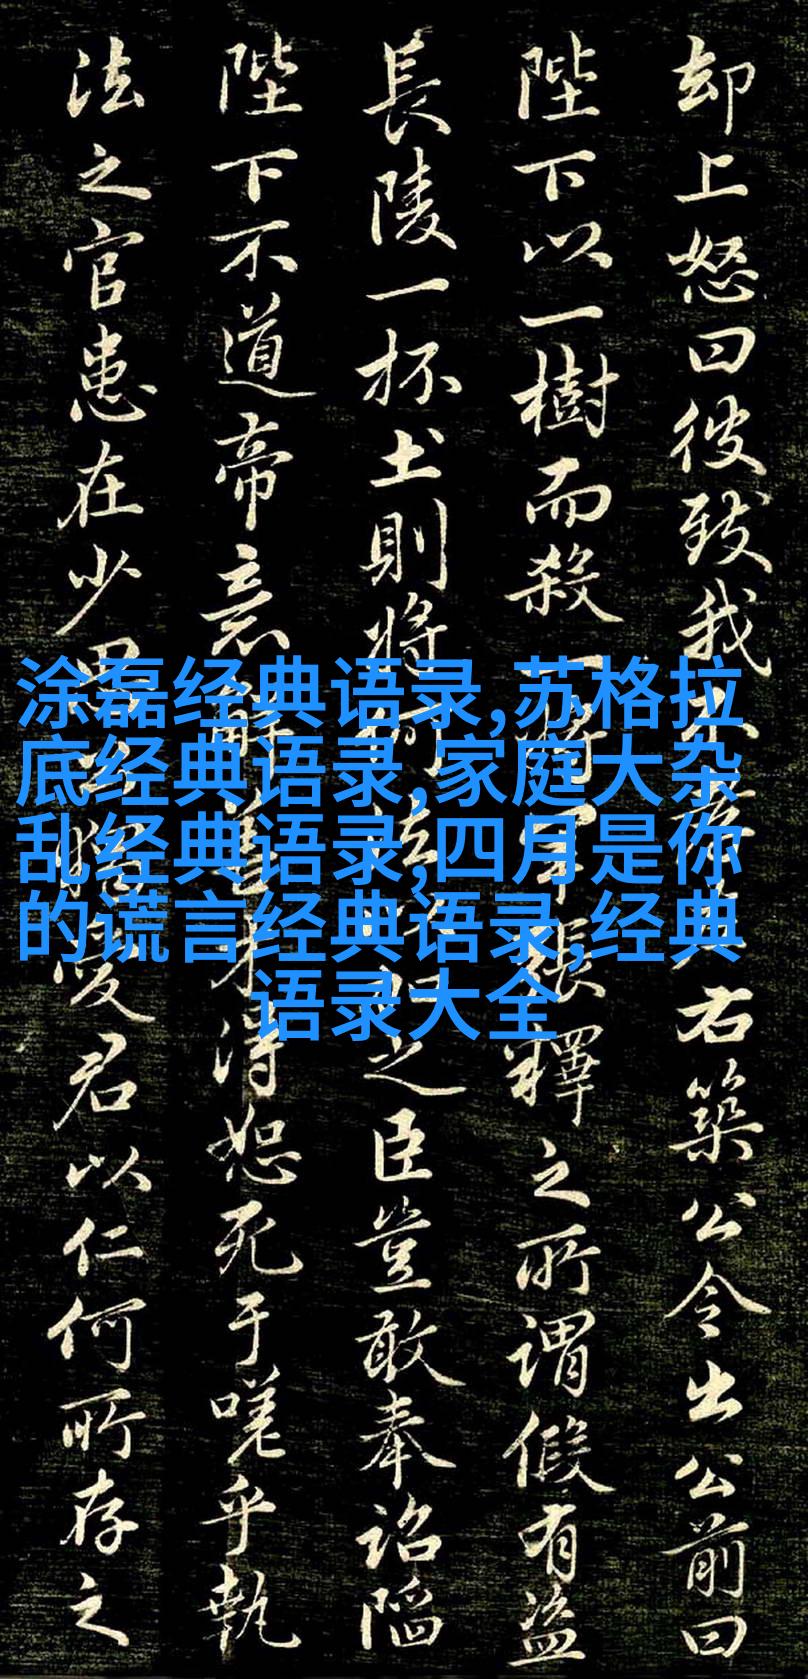 却上怒曰彼致我不左右築公令出公前曰
陛下以一樹而殺一將軍張釋之所謂假有盜
長陵一抔土則將何法之臣豈敢奉詔陷
陛下不道帝意解善才得恕死于嗟乎執
法之官患在少恩愛君以仁何所存之
涂磊经典语录,苏格拉
底经典语录,家庭大杂
乱经典语录,四月是你
的谎言经典语录,经典
语录大全